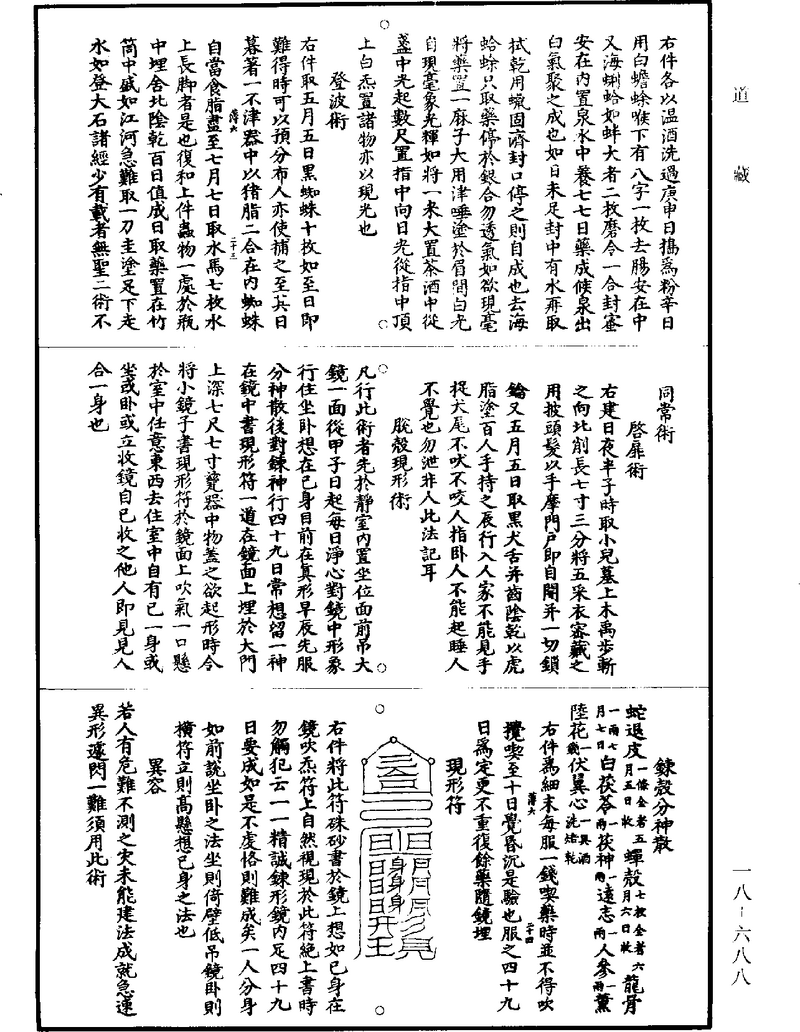 道藏
右件各以温酒洗過庚申日搗爲粉辛日
用白蟾蜍喉下有八字一枚去腸安在中
又海蜊蛤如蚌大者二枚磨令一合封蜜
安在内置泉水中養七七日藥成候泉出
白氣聚之成也如日未足封中有水再取
拭乾用蠟固濟封口停之則自成也去海
蛤蜍只取藥停於銀合勿透氣如欲現毫
將藥置一麻子大用津唾塗於眉間白光
自現毫象光輝如將一米大置茶酒中從
盞中光起數尺置指中向日光從指中頂
上白炁置諸物亦以現光也
登波術
右件取五月五日黑蜘蛛十枚如至日即
難得時可以預分布人亦使捕之至其日
暮著一不津器中以猪脂二合在内蜘蛛
薄六
二十三
自當食脂盡至七月七日取水馬七枚水
上長脚者是也復和上件蟲物一處於瓶
中埋舍北陰乾百日值成日取藥置在竹
筒中盛如江河急難取一刀圭塗足下走
水如登大石諸經少有載者無聖二術不
同常術
啓扉術
右建日夜半子時取小兒墓上木禹步斬
之向北削長七寸三分將五采衣密藏之
用披頭髮以手摩門戶即自開并一切鎖
鑰又五月五日取黑犬舌并齒陰乾以虎
脂塗百人手持之辰行入人家不能見手
捉犬尾不吠不咬人指卧人不能起睡人
不覺也勿泄非人此法記耳
脱殼現形術
凡行此術者先於静室内置坐位面前吊大
鏡一面從甲子日起每日淨心對鏡中形象
行住坐卧想在己身目前在真形早辰先服
分神散後對鍊神行四十九日常想留一神
在鏡中書現形符一道在鏡面上埋於大門
上深七尺七寸瓷器中物蓋之欲起形時令
將小鏡子書現形符於鏡面上吹氣一口懸
於室中任意東西去住室中自有己一身或
坐或卧或立收鏡自己收之他人即見見人
合一身也
鍊殼分神散
蛇退皮一條全者五月五日收 蟬殼七枚全者六月六日收 龍骨一兩七月七日 白茯苓一兩 茯神一兩 遠志一兩 人參一兩 薰陸花 伏翼心一具酒洗焙乾
右件爲細末每服一錢喫藥時並不得吹
薄六
二十四
攪喫至十日覺昏沉是驗也服之四十九
日爲定更不重復餘藥隨鏡埋
現形符
右件將此符硃砂書於鏡上想如己身在
鏡吹炁符上自然視現於此符絶上書時
勿觸犯云一一精誠鍊形鏡内足四十九
日要成如是不虔恪則難成矣一人分身
如前說坐卧之法坐則倚壁低吊鏡卧則
橫符立則高懸想己身之法也
異容
若人有危難不測之灾未能建法成就急速
異形遽閃一難須用此術
一八－六八八